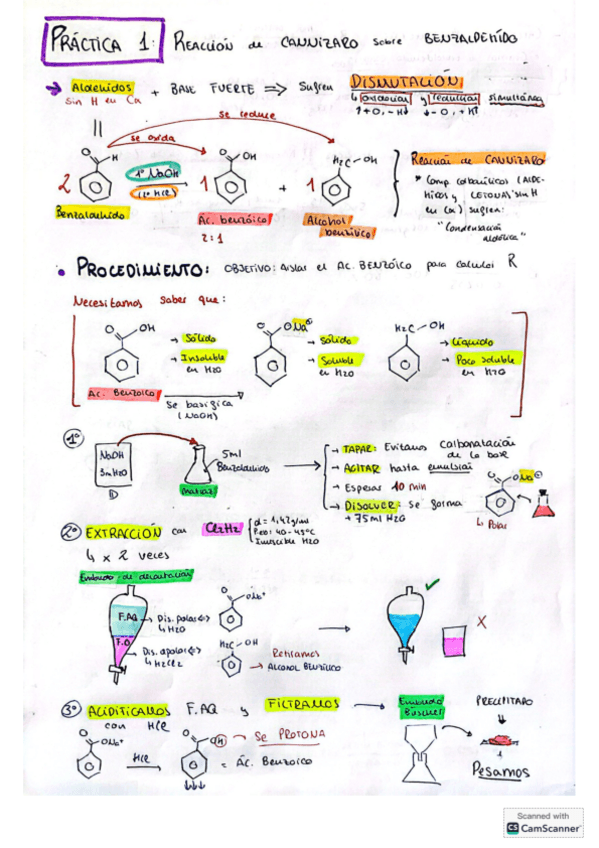 PRÁCTICA 1: REACCIÓN de CANNIZARO sobre BENZALDEHÍDO
→ Aldehidos + BASE FUERTE ⇒ Sufren DISMUTACIÓN
Sin H en Cα
↳ oxidación y reducción simultánea
↑+O, -H ↓-O, +H↑
se reduce
se oxida
O H
O OH
H2C - OH
2
1º NaOH
(2º HCl)
1 + 1
Benzaldehido
Ác. benzóico
Alcohol bencílico
2:1
Reacción de CANNIZARO
* Comp. carbonílicos (ALDE-
HIDOS y CETONAS sin H
en Cα) sufren:
"Condensación
aldólica"
• PROCEDIMIENTO: OBJETIVO: Aislar el AC. BENZÓICO para calcular R
Necesitamos saber que:
O OH
→ Sólido
→ Insoluble
en H2O
Ac. Benzoico
se basifica
(NaOH)
O ONa
→ Sólido
→ Soluble
en H2O
H2C - OH
→ Líquido
→ Poco soluble
en H2O
1º
NaOH
3m H2O
5ml
Benzaldehido
matraz
→ TAPAR: Evitamos carbonatación
de la base
→ AGITAR hasta emulsión
→ Esperar 10 min
→ DISOLVER: se forma
+ 75ml H2O
O ONa
↳ Polar
2º EXTRACCIÓN con
d = 1,42g/ml
P.eb: 40-45ºC
Inmiscible H2O
4 x 2 veces
Embudo de decantación
F.AQ
F.O
→ Dis. polar
↳ H2O
→ Dis. apolar
O ONa+
H2C - OH
Retiramos
→ ALCOHOL BENCÍLICO
X
3º ACIDIFICAMOS F.AQ y FILTRAMOS → Embudo
Büchner
con HCl
PRECIPITADO
O ONa+
HCl
O OH
→ SE PROTONA
= Ác. Benzoico
Pesamos
Scanned with
CS CamScanner